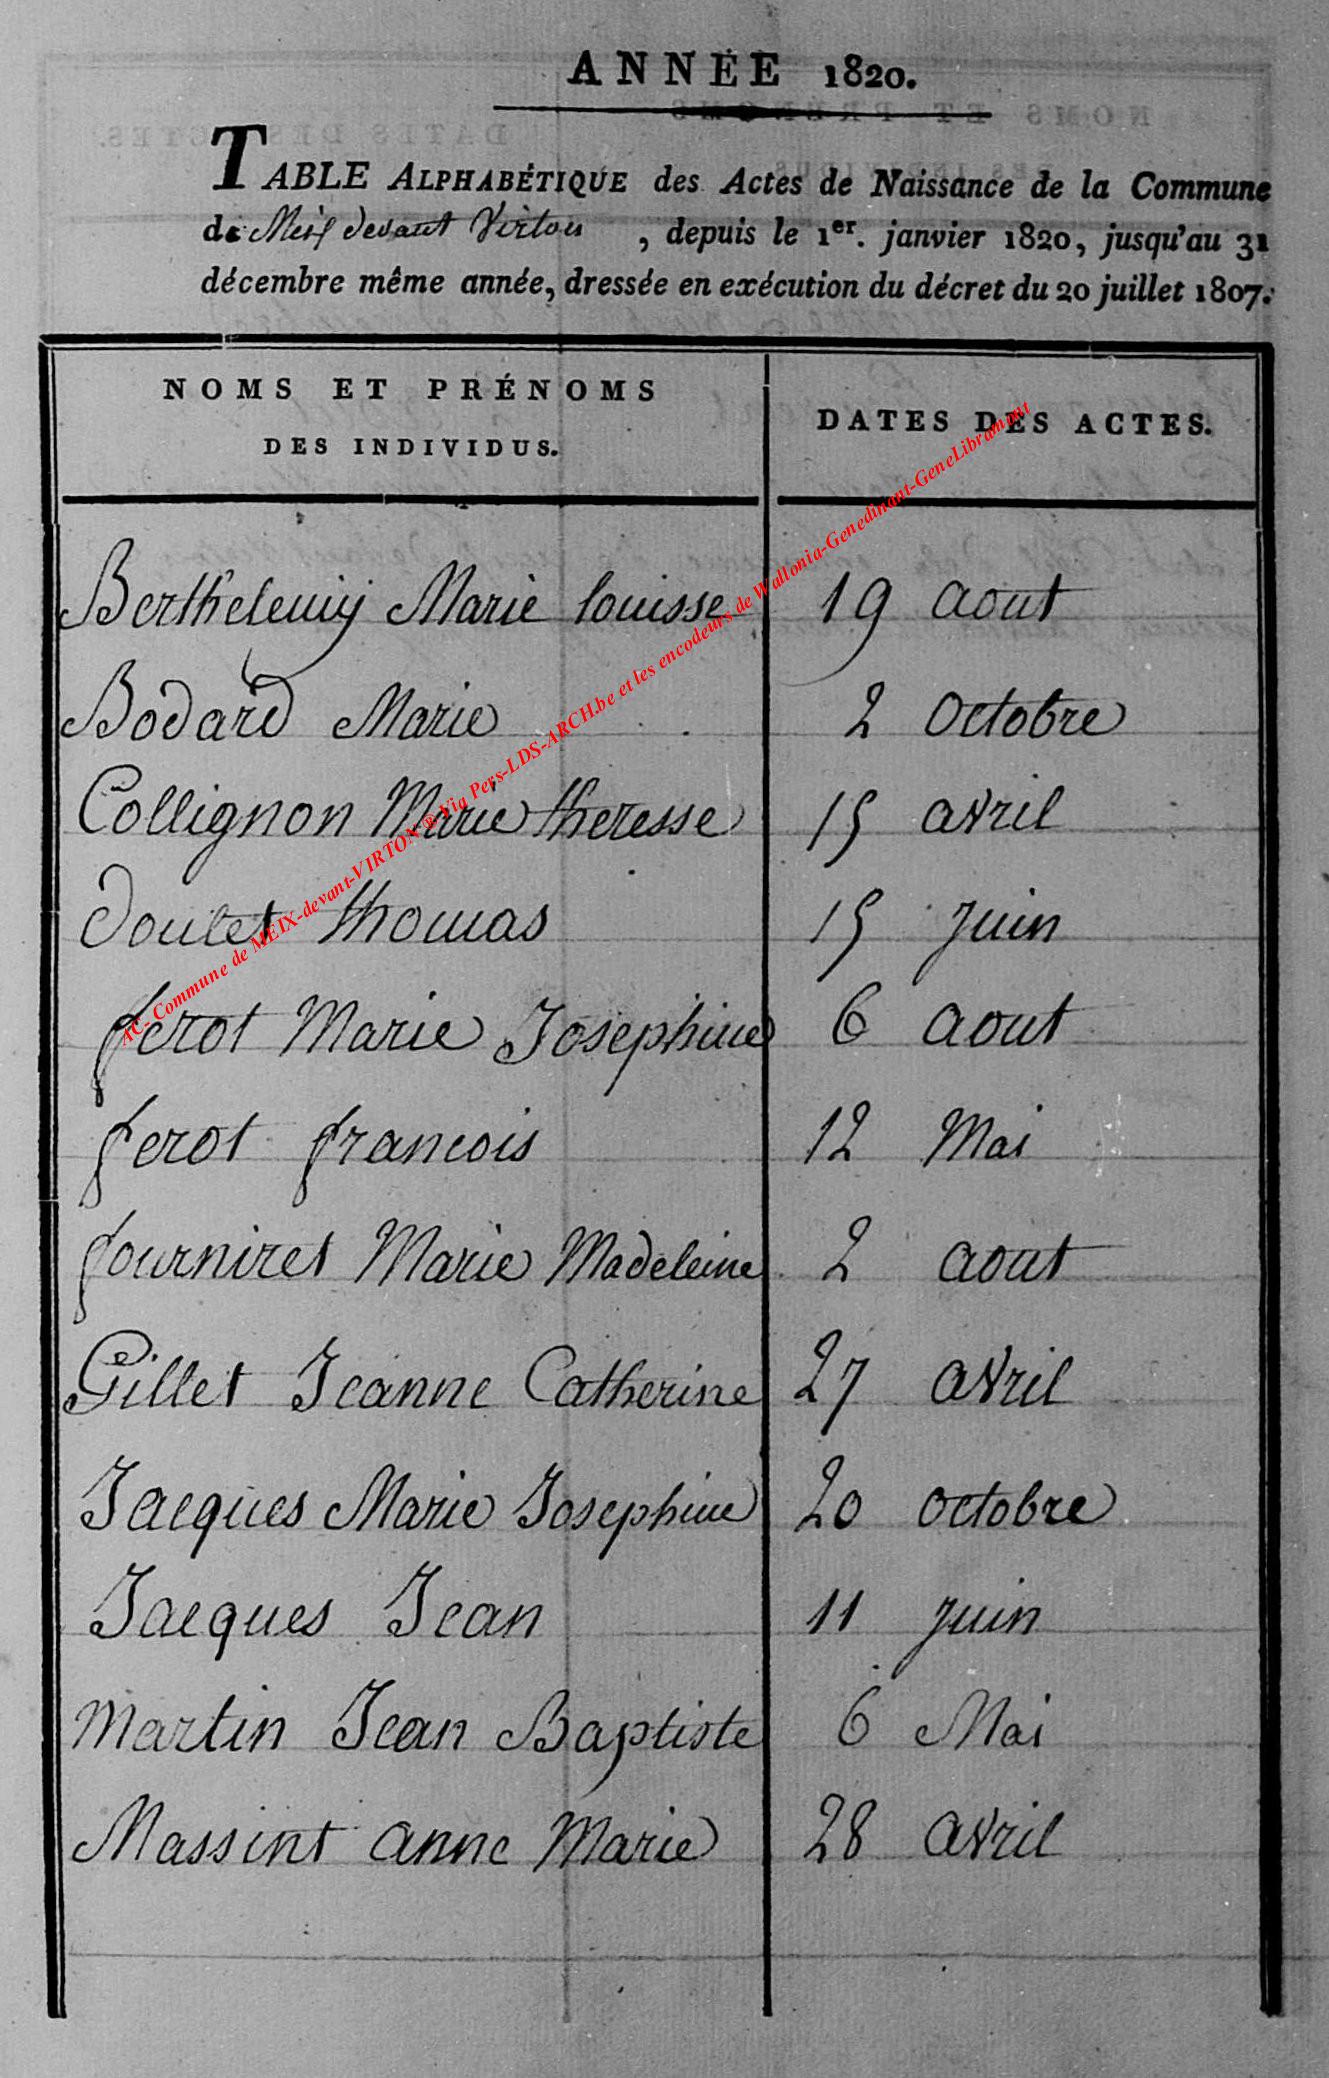 ANNÉE 1820.
TABLE ALPHABÉTIQUE des Actes de Naissance de la Commune
de Meix devant Virton , depuis le 1er. janvier 1820, jusqu'au 31
décembre même année, dressée en exécution du décret du 20 juillet 1807.
NOMS ET PRÉNOMS
DES INDIVIDUS.
DATES DES ACTES.
Berthelemy Marie louisse 19 aout
Bodard Marie 2 Octobre
Collignon Marie theresse 15 avril
doulet thomas 15 juin
ferot Marie Josephine 6 aout
ferot francois 12 Mai
fourniret Marie Madeleine 2 aout
Gillet Jeanne Catherine 27 avril
Jacques Marie Josephine 20 octobre
Jacques Jean 11 juin
Martin Jean Baptiste 6 Mai
Massint anne Marie 28 avril
AC- Commune de MEIX-devant-VIRTON®-Via Pers-LDS-ARCH.be et les encodeurs de Wallonia-Genedinant-GeneLibramont